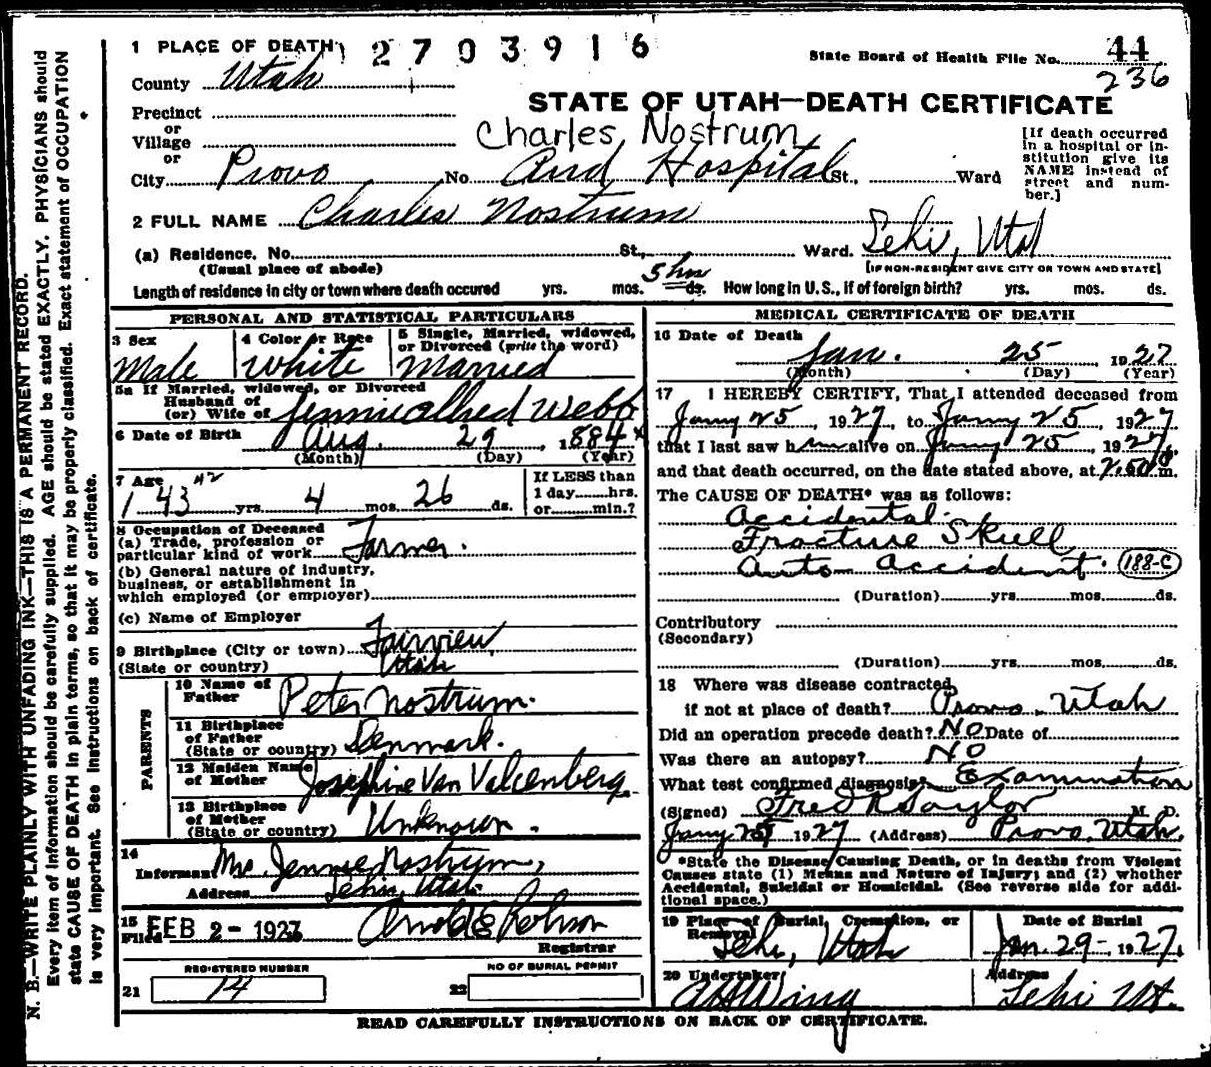 1 PLACE OF DEATH 2703916
State Board of Health File No. 44
County Utah 236
STATE OF UTAH—DEATH CERTIFICATE
Precinct
or
Village
or
Charles Nostrum
City Provo No. And Hospital St., Ward
[If death occurred in a hospital or institution give its NAME instead of street and number.]
2 FULL NAME Charles Nostrum
(a) Residence. No. St., Ward. Lehi, Utah
(Usual place of abode) [IF NON-RESIDENT GIVE CITY OR TOWN AND STATE]
Length of residence in city or town where death occured yrs. mos. 5 hrs ds. How long in U. S., if of foreign birth? yrs. mos. ds.
PERSONAL AND STATISTICAL PARTICULARS
3 Sex Male
4 Color or Race White
5 Single, Married, widowed, or Divorced (write the word) Married
5a If Married, widowed, or Divorced
Husband of
(or) Wife of Jennie Allred Webb
6 Date of Birth Aug. 29, 1884
(Month) (Day) (Year)
7 Age 43 42 yrs. 4 mos. 26 ds.
If LESS than
1 day......hrs.
or......min.?
8 Occupation of Deceased
(a) Trade, profession or
particular kind of work Farmer.
(b) General nature of industry,
business, or establishment in
which employed (or employer)
(c) Name of Employer
9 Birthplace (City or town) Fairview,
(State or country) Utah
PARENTS
10 Name of Father Peter Nostrum.
11 Birthplace of Father (State or country) Denmark.
12 Maiden Name of Mother Josephine Van Valcenberg
13 Birthplace of Mother (State or country) Unknown.
14
Informant Mrs. Jennie Nostrum,
Address Lehi, Utah.
15 Filed FEB 2 - 1927 Arnold E Robison
Registrar
REGISTERED NUMBER
21 14
NO OF BURIAL PERMIT
22
MEDICAL CERTIFICATE OF DEATH
16 Date of Death
Jan. 25 1927
(Month) (Day) (Year)
17 I HEREBY CERTIFY, That I attended deceased from
Jany 25, 1927, to Jany 25, 1927
that I last saw him alive on Jany 25, 1927,
and that death occurred, on the date stated above, at m.
The CAUSE OF DEATH* was as follows:
Accidental.
Fracture Skull
Auto Accident. 188-C
(Duration) yrs. mos. ds.
Contributory
(Secondary)
(Duration) yrs. mos. ds.
18 Where was disease contracted
if not at place of death? Provo, Utah
Did an operation precede death? NO Date of
Was there an autopsy? NO
What test confirmed diagnosis? Examination
(Signed) Fred R Taylor M. D.
Jany 25 1927 (Address) Provo, Utah.
*State the Disease Causing Death, or in deaths from Violent
Causes state (1) Means and Nature of Injury; and (2) whether
Accidental, Suicidal or Homicidal. (See reverse side for addi-
tional space.)
19 Place of Burial, Cremation, or Removal Lehi, Utah
Date of Burial Jan. 29 - 1927.
20 Undertaker A H Wing
Address Lehi Ut.
READ CAREFULLY INSTRUCTIONS ON BACK OF CERTIFICATE.
N. B.—WRITE PLAINLY WITH UNFADING INK—THIS IS A PERMANENT RECORD.
Every item of information should be carefully supplied. AGE should be stated EXACTLY. PHYSICIANS should
state CAUSE OF DEATH in plain terms, so that it may be properly classified. Exact statement of OCCUPATION
is very important. See instructions on back of certificate.